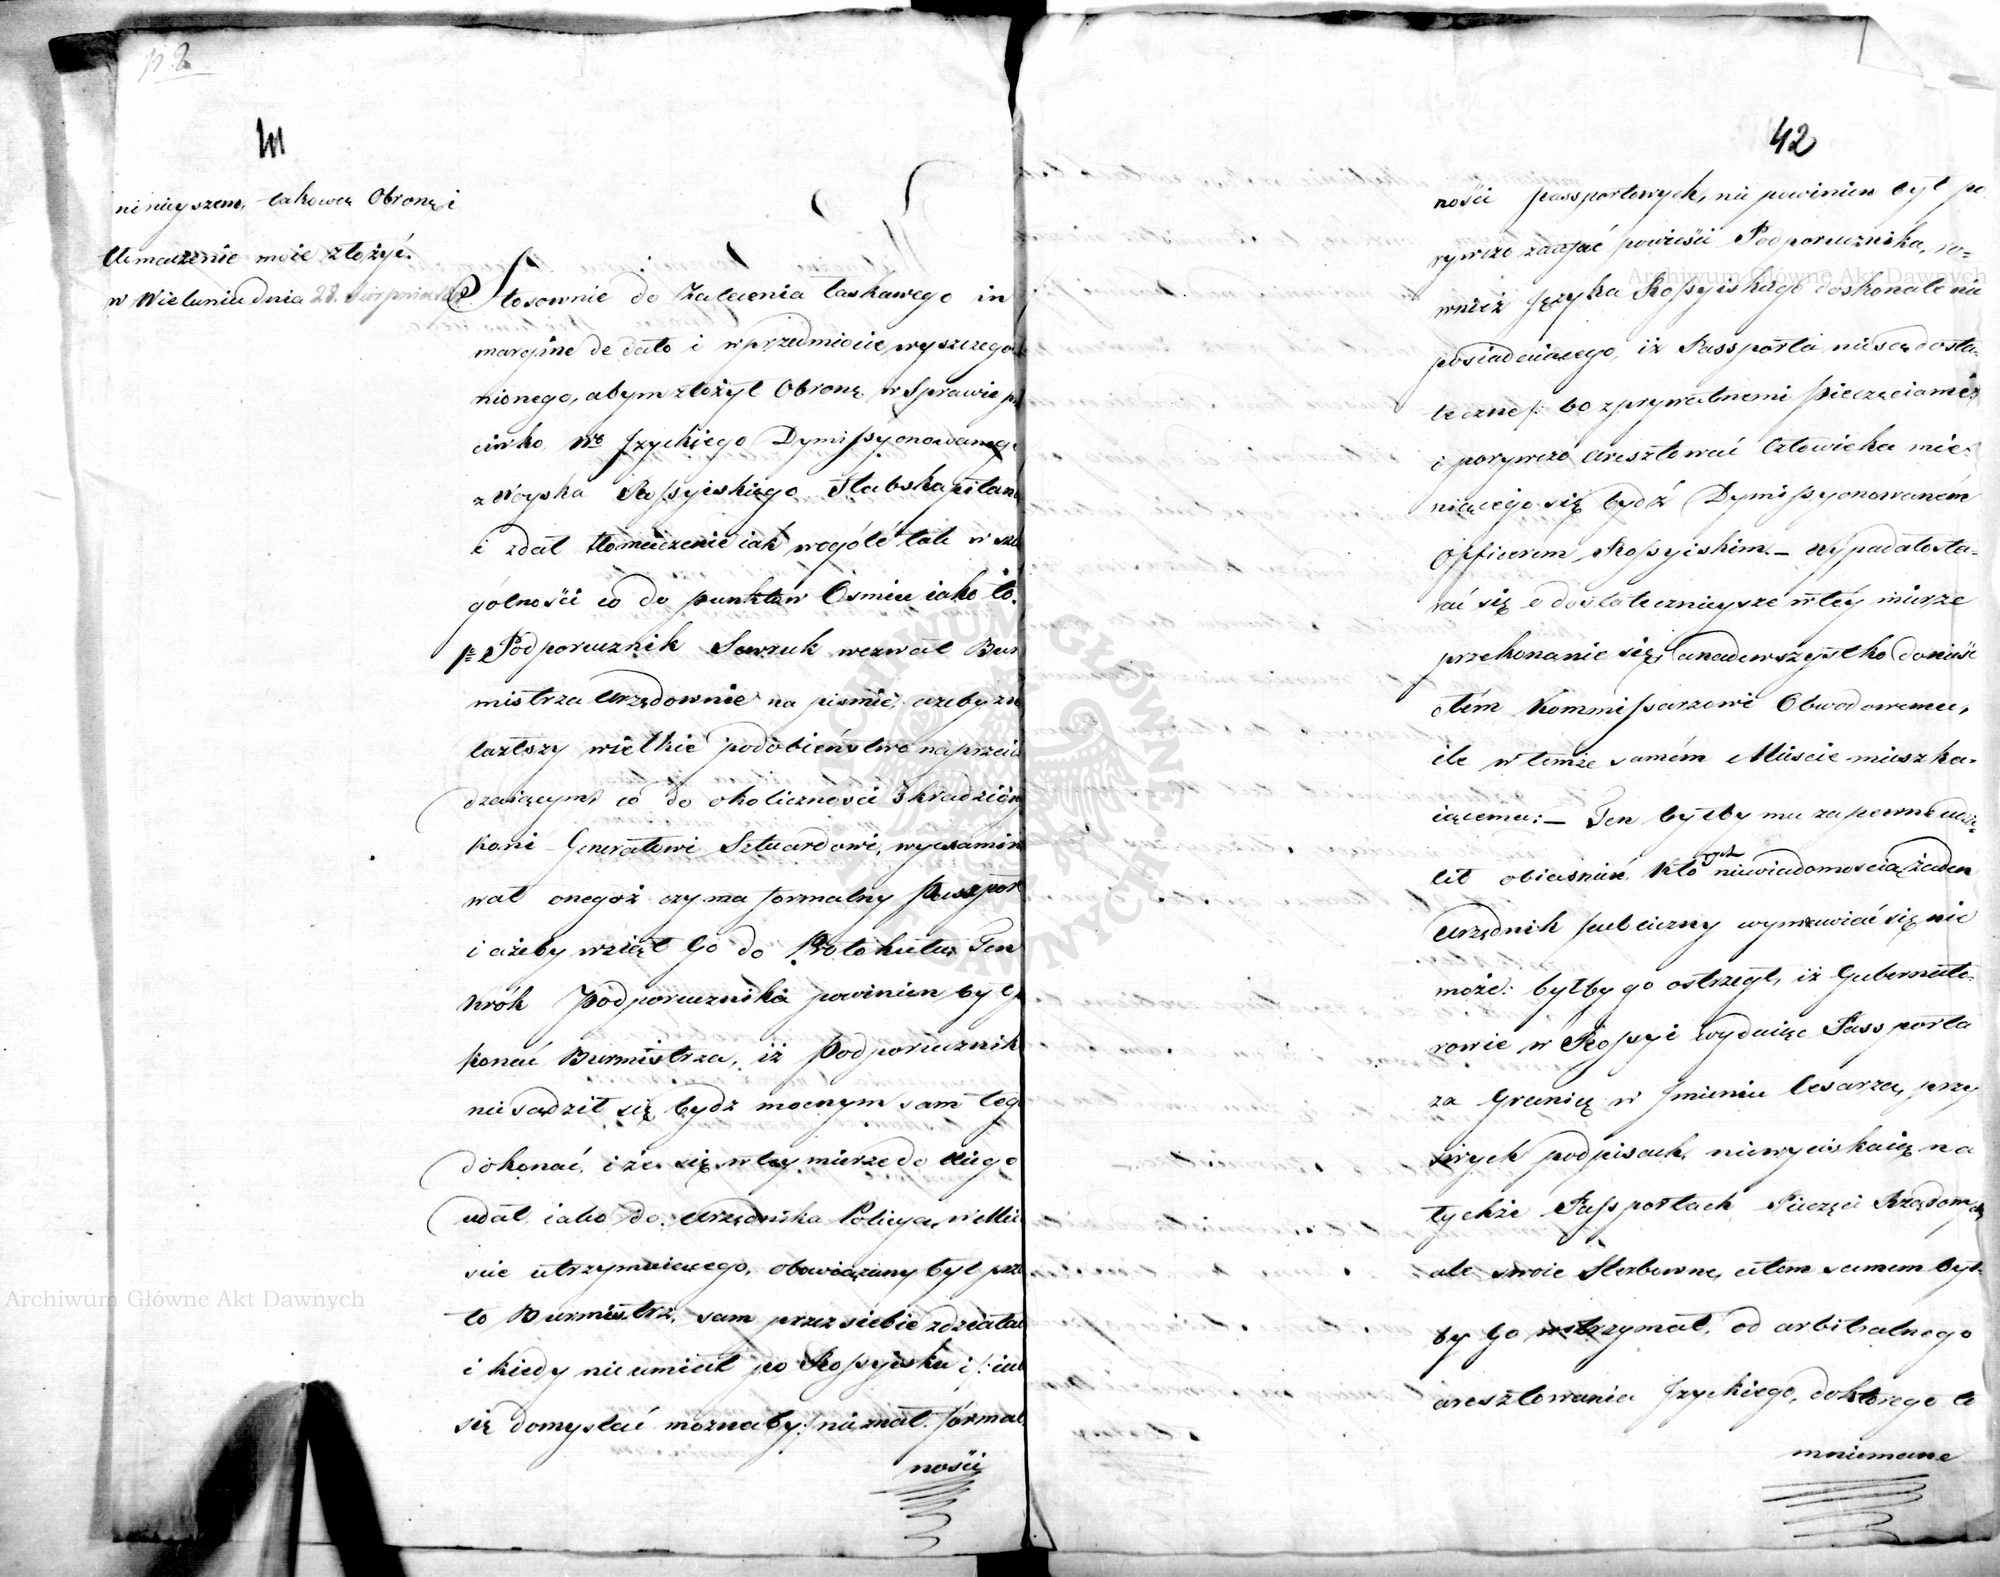 p. 2
41
ninieyszem, takową Obronę i
tłomaczenie może złożyć.
w Wieluniu dnia 28. Sierpnia
Stosownie do Zalecenia łaskawego in
margine de dato i w przedmiocie wyszczegól
nionego, abym złożył Obronę w Sprawie prze
ciwko Wo Izyckiego Dymissyonowanego
z Woyska Rossyiskiego Stabskapitana
i zdał tłomaczenie iak wogóle tak w szcze
gólności co do punktów Ośmiu iako to.
1o Podporucznik Sawzuk wezwał Bur
mistrza Urzędownie na piśmie, ażeby zna
lazłszy wielkie podobieństwo naprzeci
dzaiącym, co do okoliczności Skradzion
koni Generałowi Sztuardowi, wyexamino
wał onegoż czy ma formalny Passport
i ażeby wziął Go do Protokułu, Ten
krok Podporucznika powinien był prze
konać Burmistrza, iż Podporucznik
nie sądził się bydź mocnym sam tego
dokonać, i że się w tey mierze do niego
udał, iako do Urzędnika Policyą w Mie
scie utrzymuiącego, obowiązany był prze
to Burmistrz, sam przez siebie zdziałać
i kiedy nie umiał po Rossyisku i /: iak
się domyslać możnaby :/ nieznał formal
ności
42
ności passportowych, nie powinien był po
rywczo zdając powieści Podporucznika, ró-
wnież Języka Rossyiskiego doskonale nie
posiadaiącego, iż Passporta nie są dosta-
teczne /: bo z prywatnemi Pieczęciami :/
i porywczo aresztować Człowieka mie-
niącego się bydź Dymissyonowaném
Officerem Rossyiskim. – Wypadało sta-
rać się o dostatecznieysze w tey mierze
przekonanie się, a nadewszystko donieść
o tém Kommissarzowi Obwodowemu,
ile w temże samém Mieście mieszka-
iącemu: – Ten byłby mu zapewne udzie-
lił obiasnień któ rych niewiadomością żaden
Urzędnik publiczny wymawiać się nie
może: byłby go ostrzegł, iż Gubernato-
rowie w Rossyi wydaiąc Passporta
za Granicę w Imieniu Cesarza, przy
swych podpisach, niewyciskaią na
tychże Passportach Pieczęci Rządowych
ale swoie Herbowne, a tem samem był-
by Go wstrzymał, od arbitralnego
aresztowania Izyckiego, do którego to
mniemane
Archiwum Główne Akt Dawnych
Archiwum Główne Akt Dawnych
ARCHIWUM GŁÓWNE AKT DAWNYCH